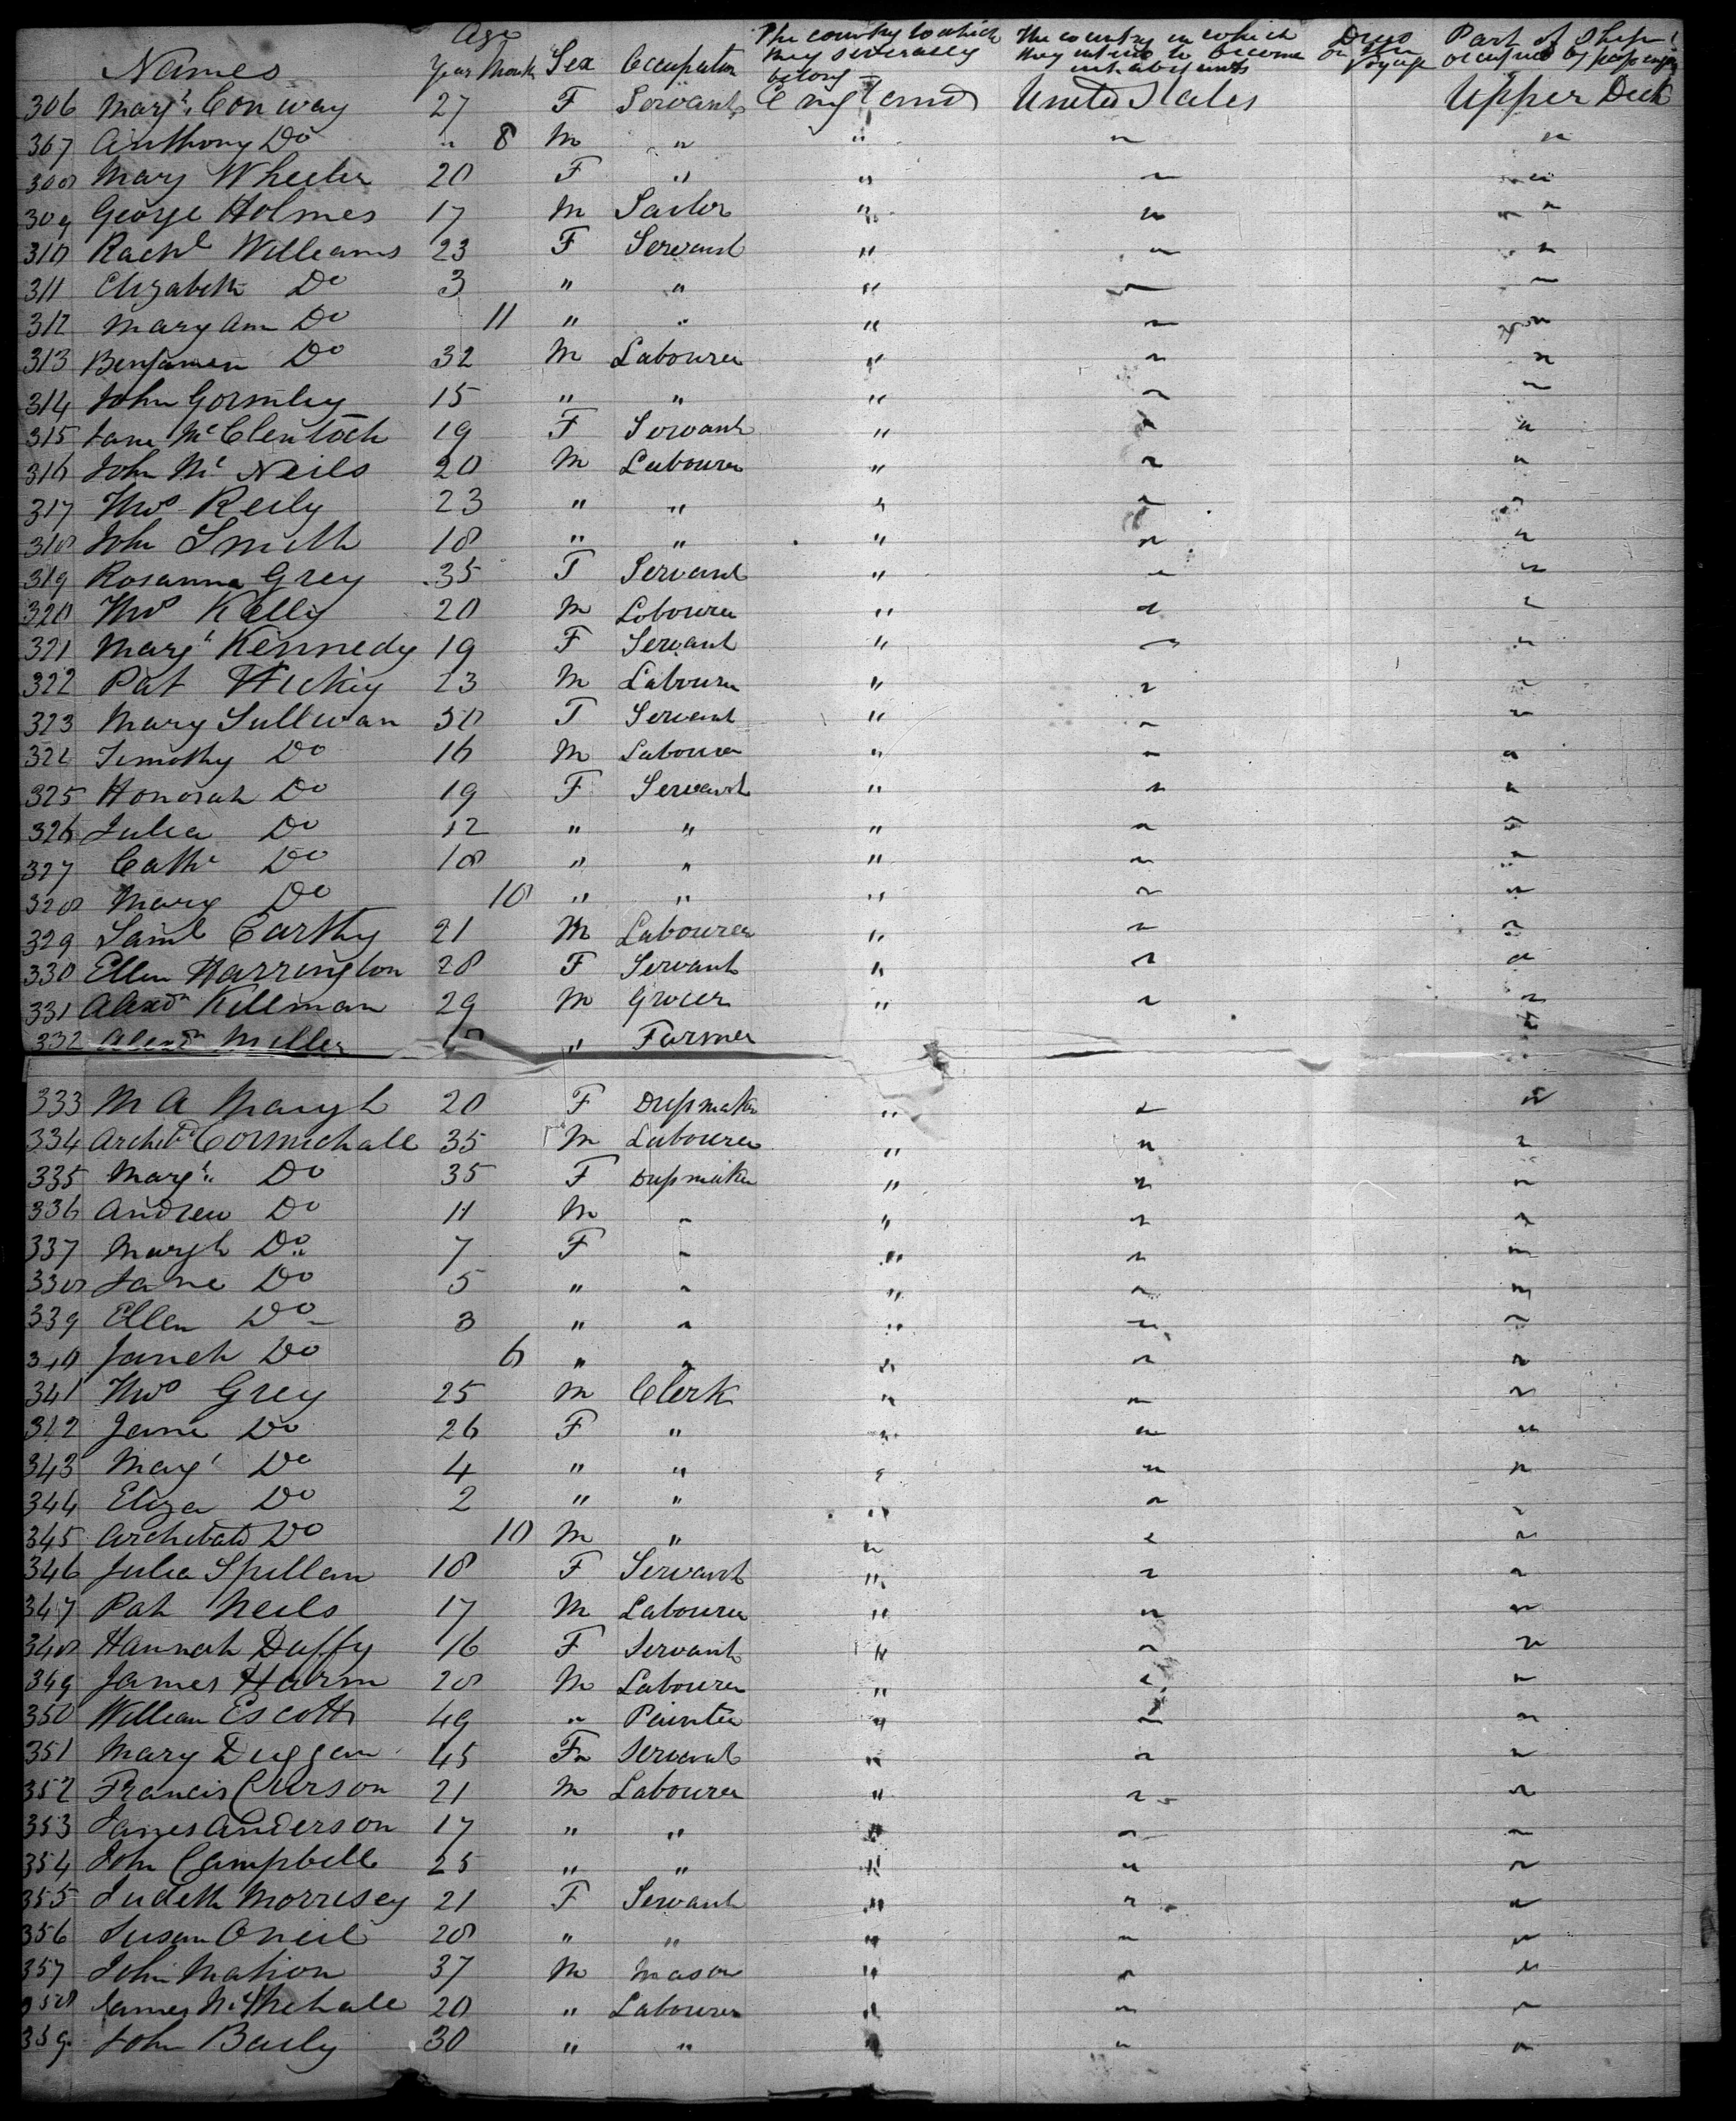 Names Age Year Month Sex Occupation The country to which they severally belong The country in which they intend to become inhabitants Died on the Voyage Part of Ship occupied by passengers
306 Margt Conway 27 F Servant England United States Upper Deck
307 Anthony Do " 8 M " " " "
308 Mary Wheeler 20 F " " " "
309 George Holmes 17 M Sailor " " "
310 Rachl Williams 23 F Servant " " "
311 Elizabeth Do 3 " " " " "
312 Mary Ann Do 11 " " " " "
313 Benjamin Do 32 M Labourer " " "
314 John Gormley 15 " " " " "
315 Jane McClentoch 19 F Servant " " "
316 John Mc Neils 20 M Labourer " " "
317 Thos Reily 23 " " " " "
318 John Smith 18 " " " " "
319 Rosanna Grey 35 F Servant " " "
320 Thos Kelly 20 M Labourer " " "
321 Margt Kennedy 19 F Servant " " "
322 Pat Hickey 23 M Labourer " " "
323 Mary Sullivan 50 F Servant " " "
324 Timothy Do 16 M Labourer " " "
325 Honorah Do 19 F Servant " " "
326 Julia Do 12 " " " " "
327 Cathe Do 18 " " " " "
328 Mary Do 10 " " " " "
329 Saml Carthy 21 M Labourer " " "
330 Ellen Harrington 28 F Servant " " "
331 Alexdr Killman 29 M Grocer " " "
332 Alexdr Miller " Farmer "
333 M A Margh 20 F Dressmaker " " "
334 Archibd Cormichale 35 M Labourer " " "
335 Margt Do 35 F Dressmaker " " "
336 Andrew Do 11 M " " " "
337 Margh Do 7 F " " " "
338 Jane Do 5 " " " " "
339 Ellen Do 3 " " " " "
340 Janeh Do 6 " " " " "
341 Thos Grey 25 M Clerk " " "
342 Jane Do 26 F " " " "
343 Margt Do 4 " " " " "
344 Eliza Do 2 " " " " "
345 Archibald Do 10 M " " " "
346 Julia Spillan 18 F Servant " " "
347 Pat Neils 17 M Labourer " " "
348 Hannah Duffy 16 F Servant " " "
349 James Harm 28 M Labourer " " "
350 William Escott 49 " Painter " " "
351 Mary Duggan 45 F Servant " " "
352 Francis Curson 21 M Labourer " " "
353 James Anderson 17 " " " " "
354 John Campbell 25 " " " " "
355 Judeth Morrisey 21 F Servant " " "
356 Susan ONeil 28 " " " " "
357 John Mahon 37 M Mason " " "
358 James 20 " Labourer " " "
359 John Baily 30 " " " " "